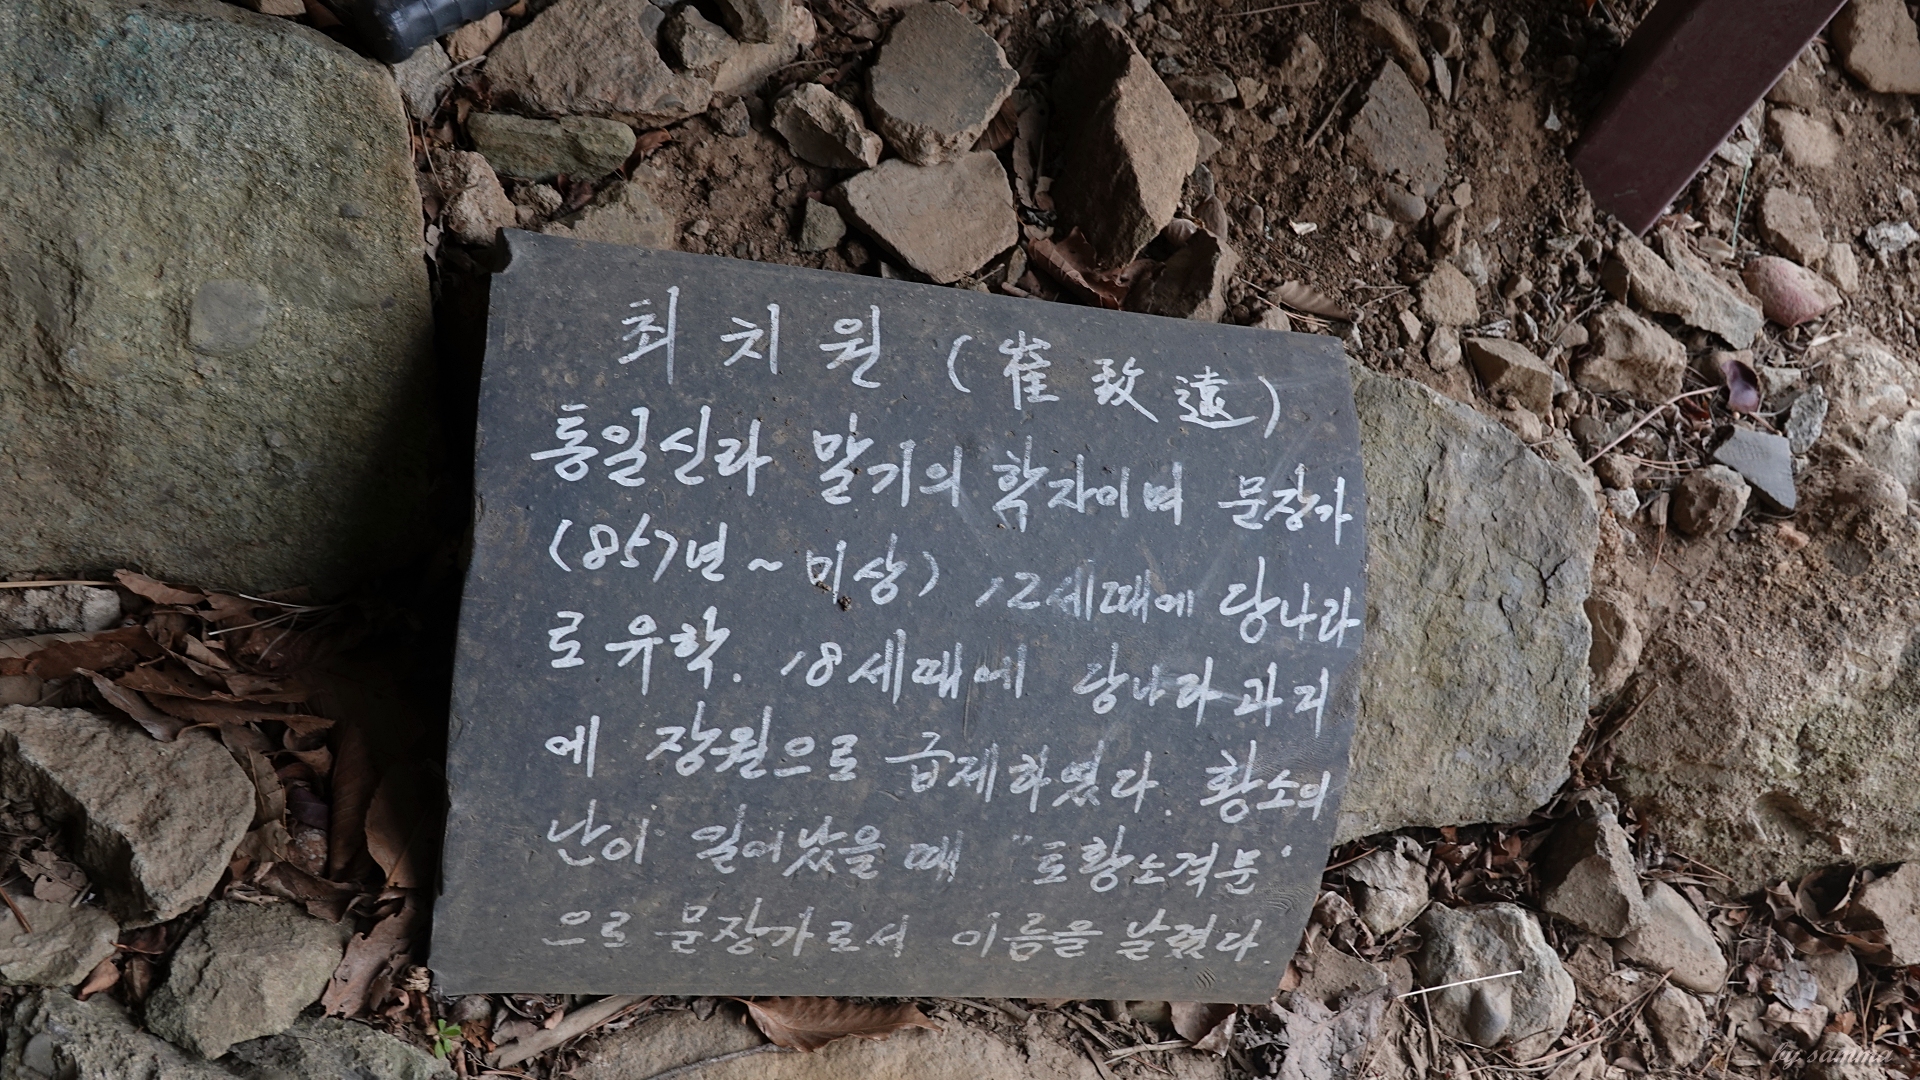 최치원 (崔致遠)
통일신라 말기의 학자이며 문장가
(857년 ~ 미상) 12세때에 당나라
로 유학. 18세때에 당나라 과거
에 장원으로 급제하였다. 황소의
난이 일어났을 때 "토황소격문"
으로 문장가로서 이름을 날렸다.
by samma